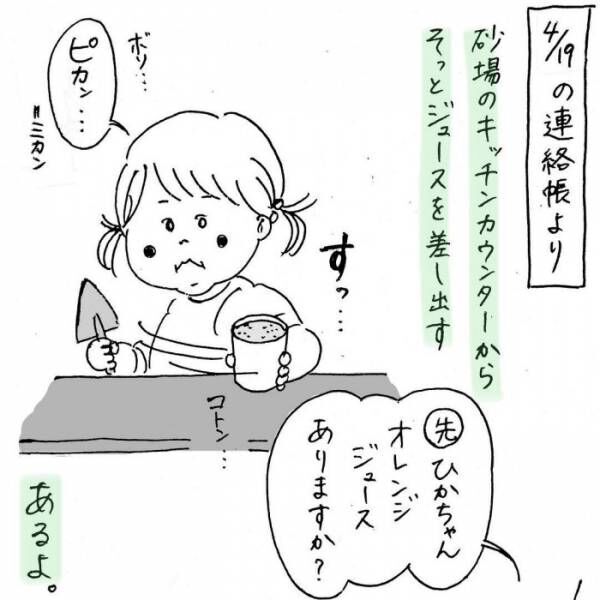 4/19の連絡帳より
砂場のキッチンカウンターから
そっとジュースを差し出す
すっ…
ボソ…
ピカン…
=ミカン
コトン…
先 ひかちゃん
オレンジ
ジュース
ありますか?
あるよ。